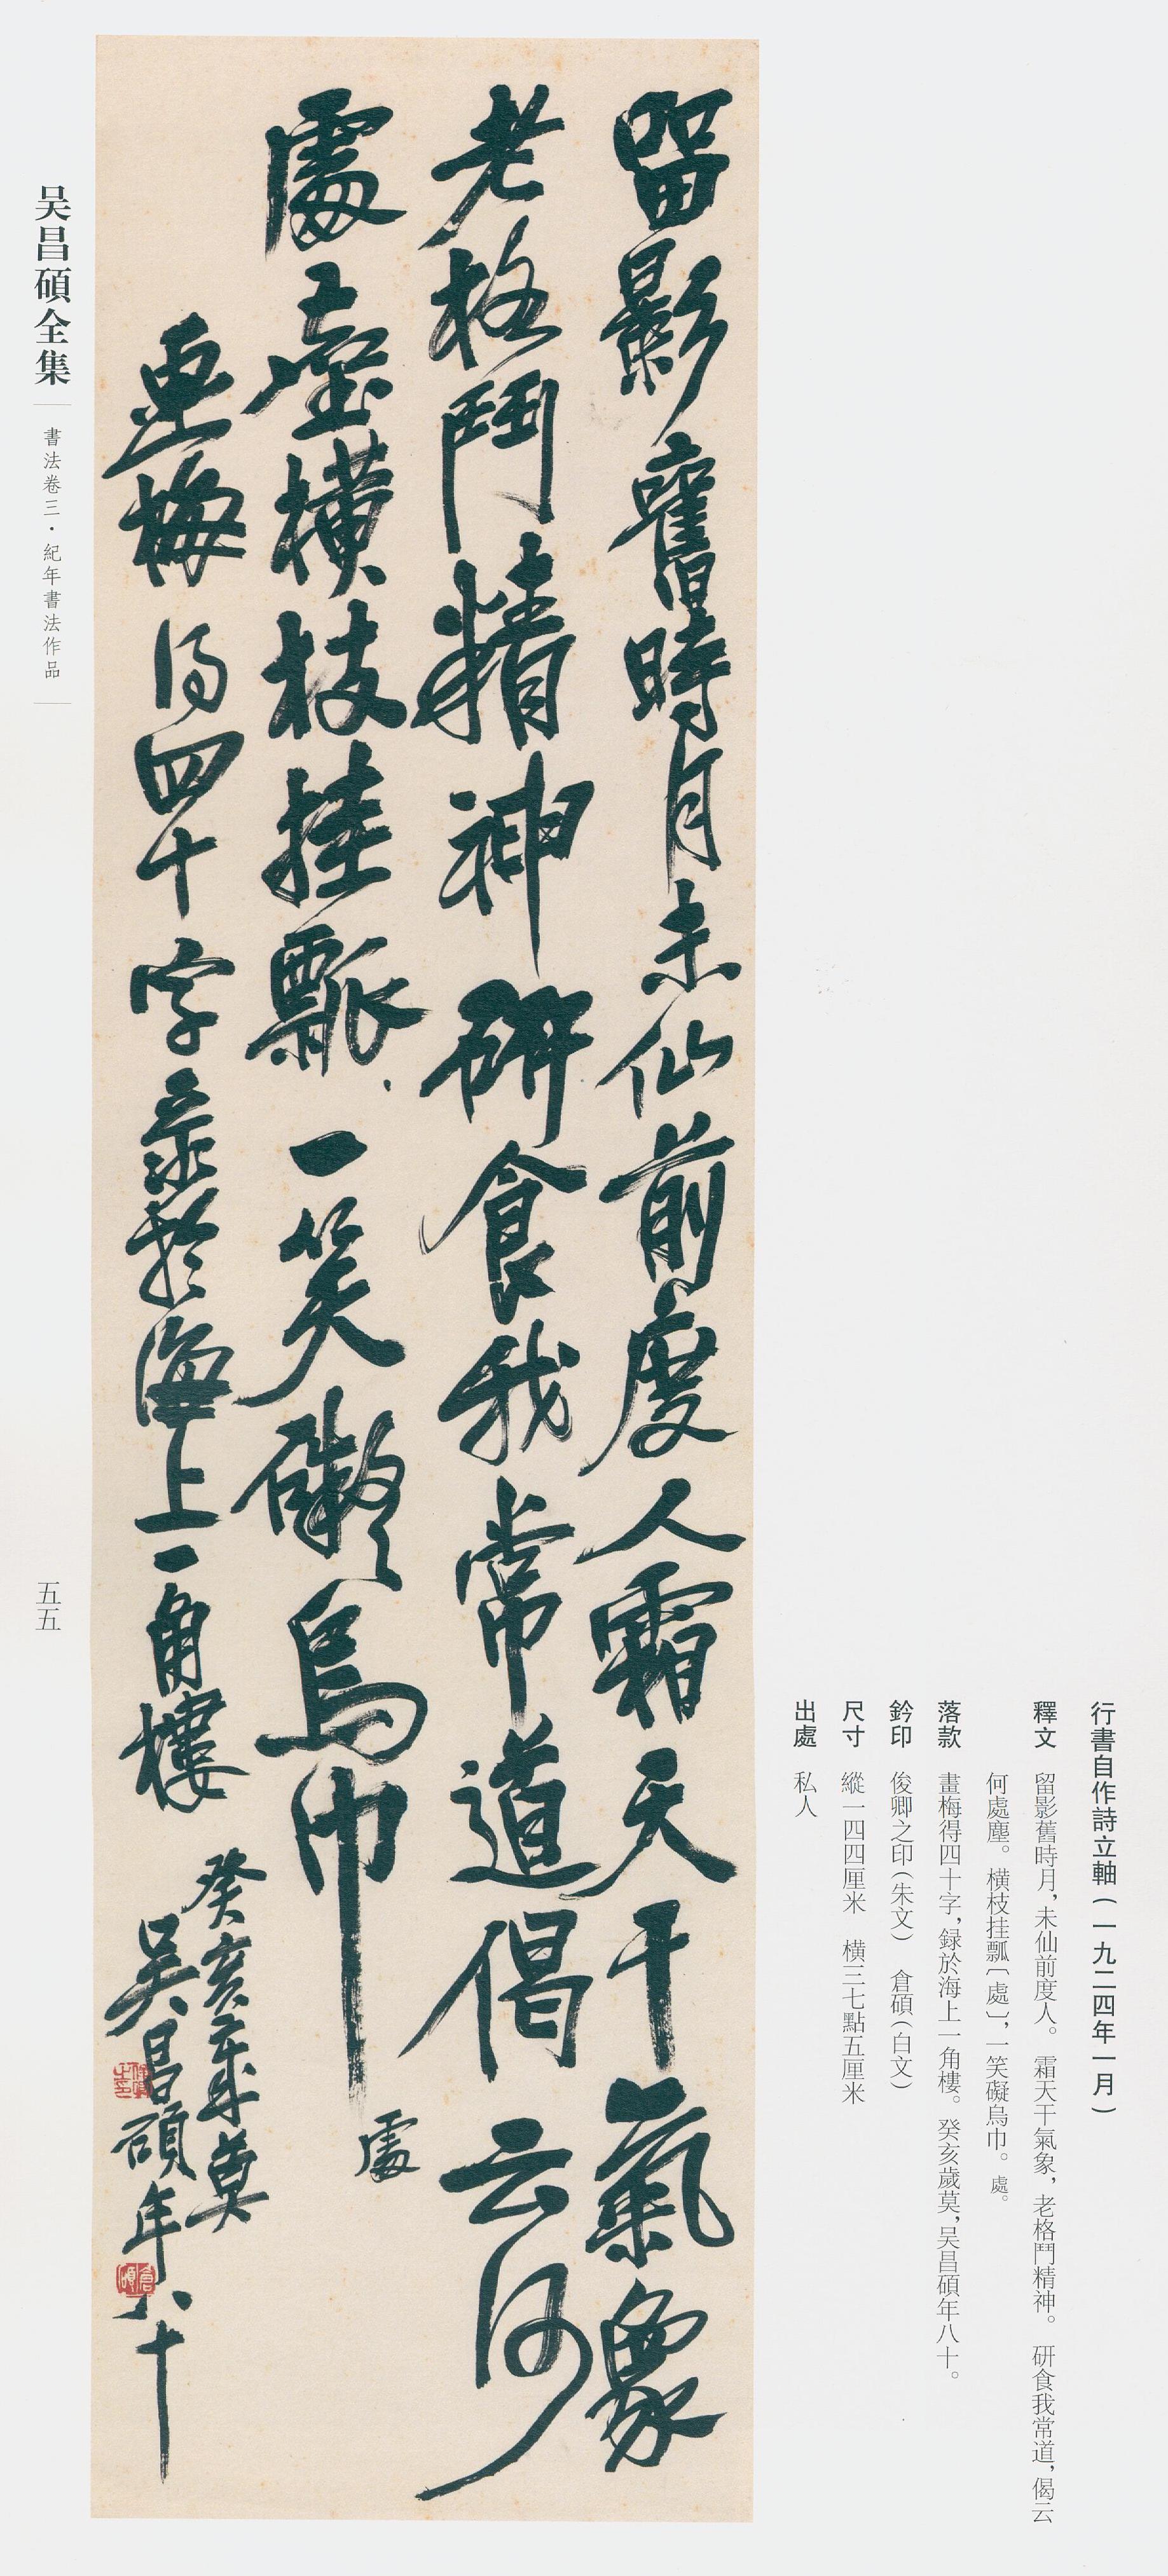 行書自作詩立軸（一九二四年一月）
釋文　留影舊時月，未仙前度人。霜天干氣象，老格鬥精神。研食我常道，偈云
何處塵。橫枝挂瓢〔處〕，一笑礙烏巾。處。
落款　畫梅得四十字，録於海上一角樓。癸亥歲莫，吴昌碩年八十。
鈐印　俊卿之印（朱文）　倉碩（白文）
尺寸　縱一四四厘米　橫三七點五厘米
出處　私人
留影舊時月未仙前度人霜天干氣象
老格鬥精神研食我常道偈云何
處塵橫枝挂瓢一笑礙烏巾
處
畫梅得四十字录於海上一角樓
癸亥歲莫
吳昌碩年八十
俊卿之印
倉碩
吴昌碩全集
書法卷三·紀年書法作品
五五